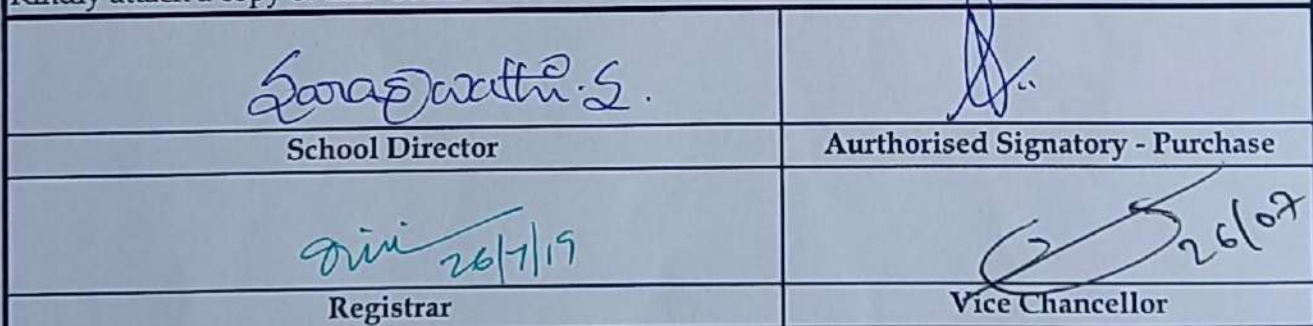 Saraswathi.S.
School Director
Aurthorised Signatory - Purchase
26/7/19
26/07
Registrar
Vice Chancellor